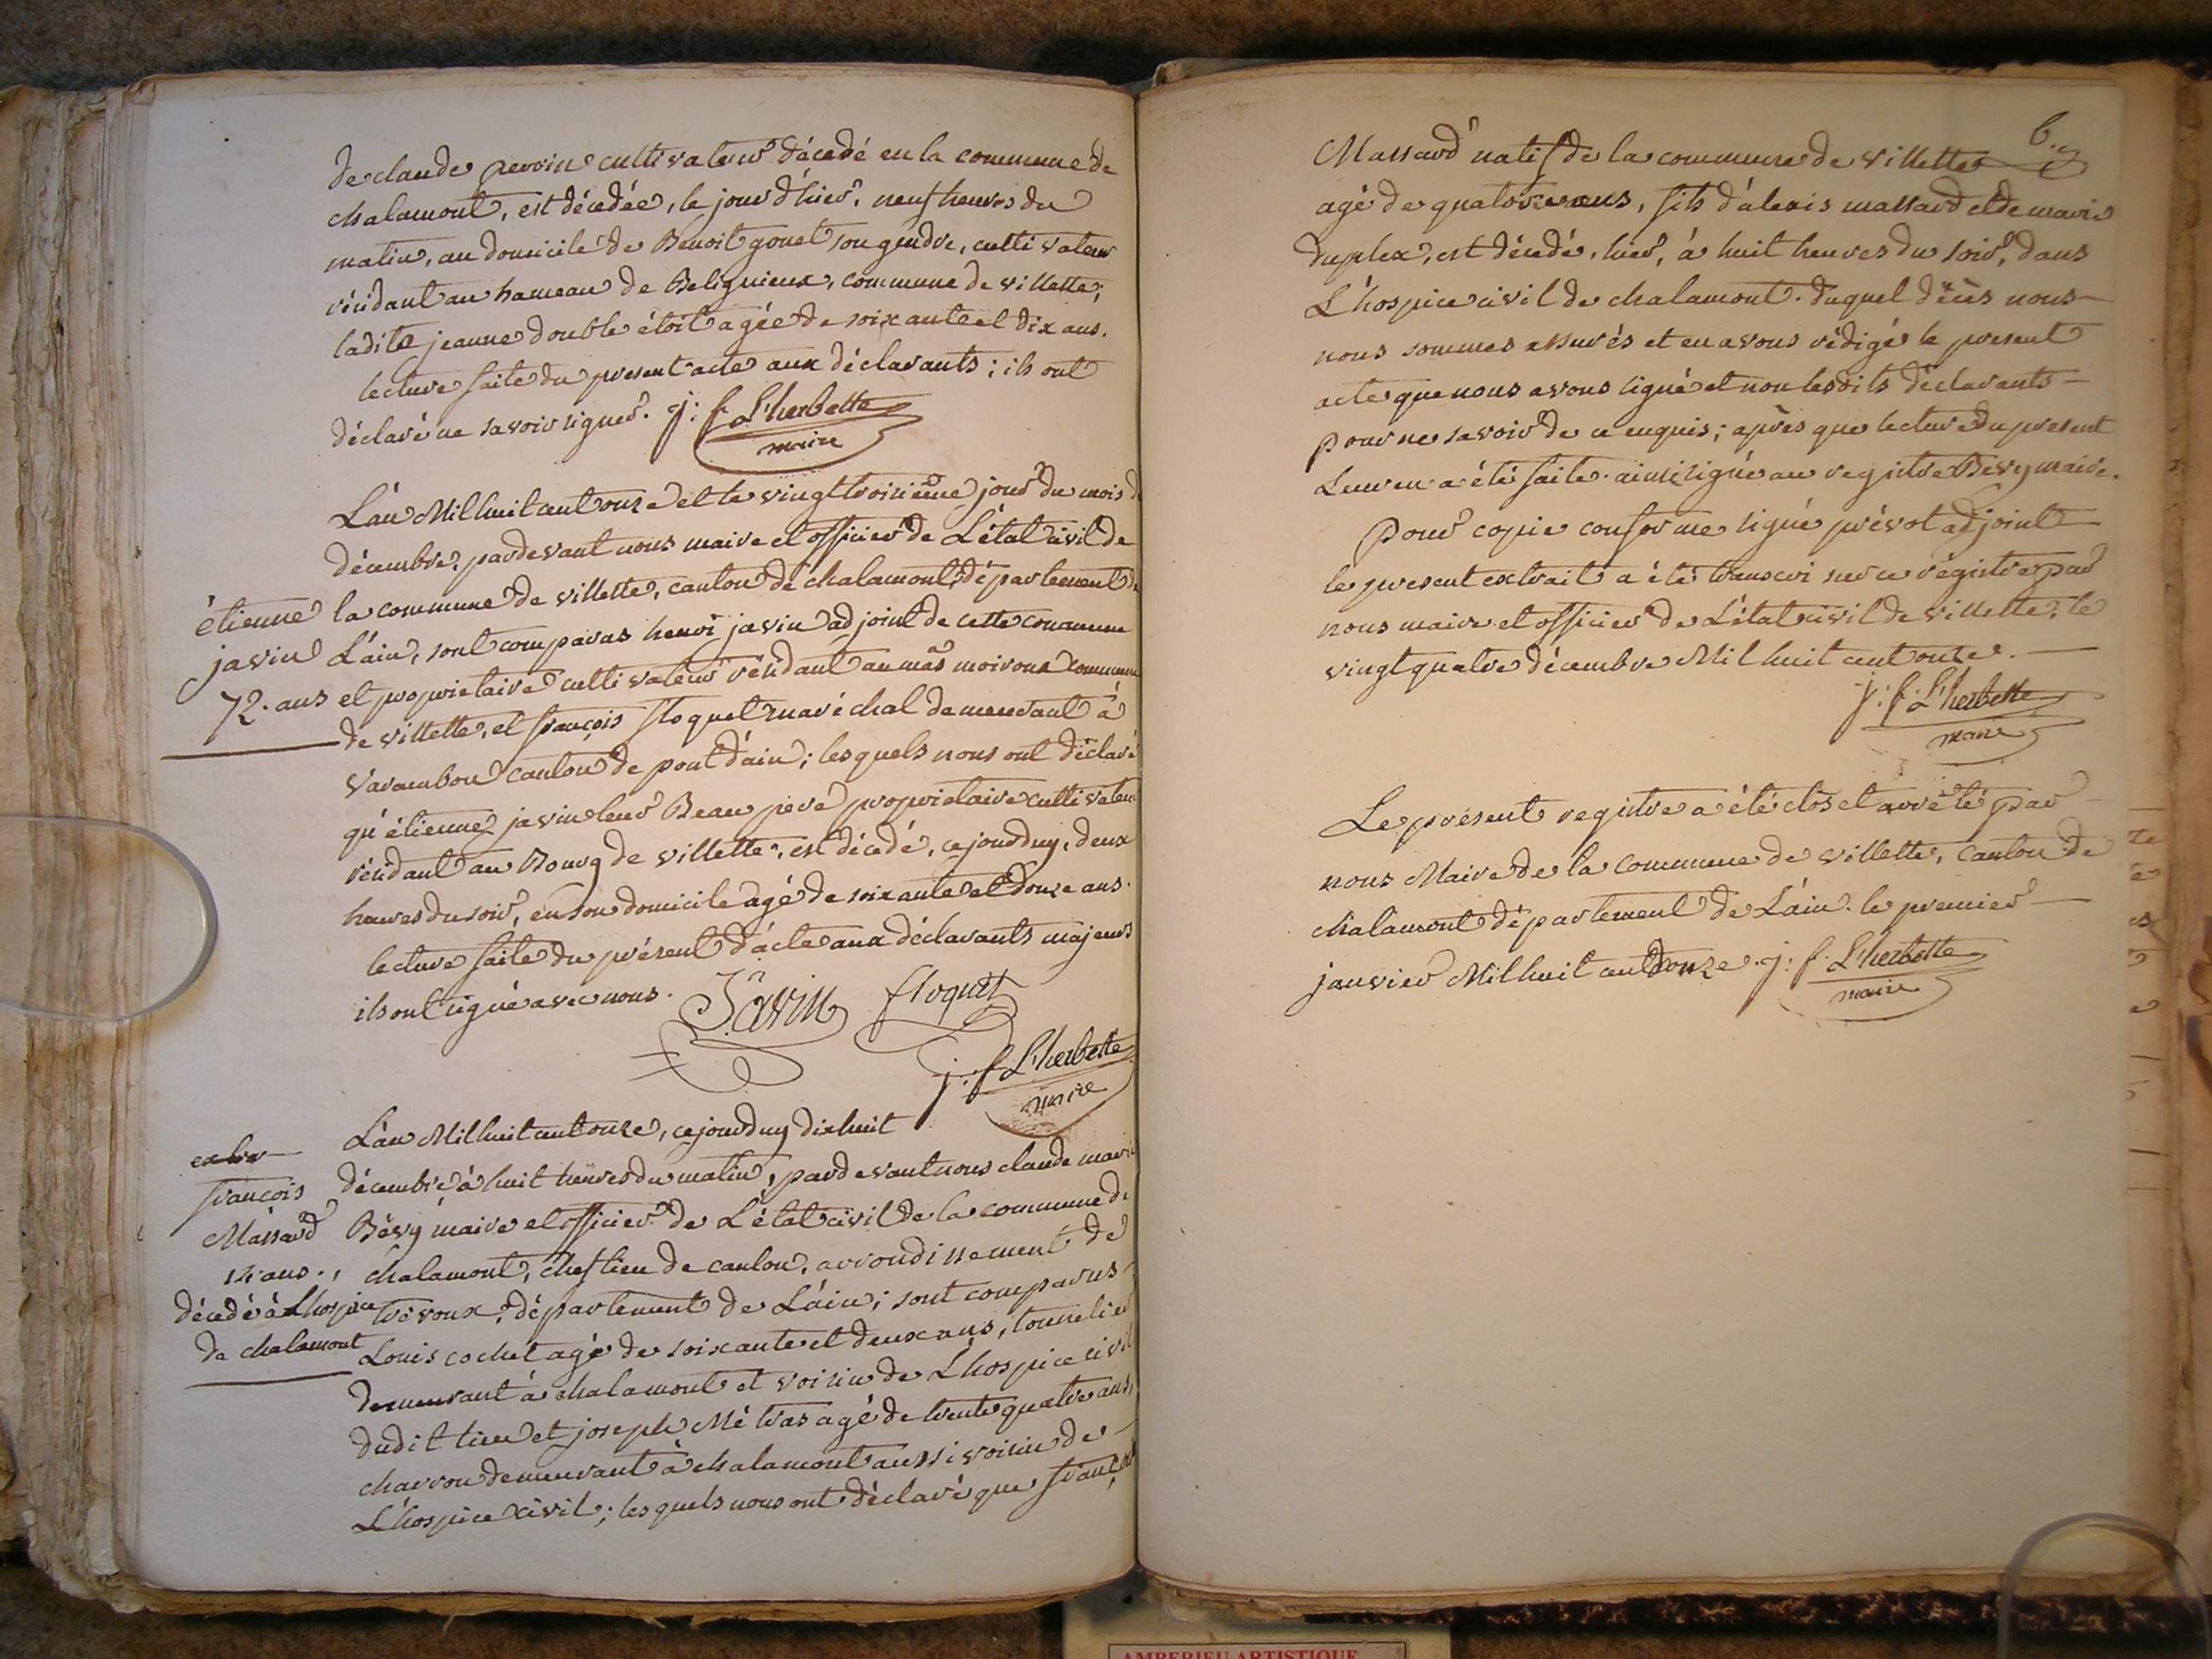 de claude perrin cultivateur décédé en la commune de
chalamont, est décédée, le jour d'hier, neuf heures du
matin, au domicile de Benoit gonet son gendre, cultivateur
résidant au hameau de Belignieux, commune de villette;
ladite jeanne double étoit agée de soixante et dix ans.
lecture faite du present acte aux déclarants; ils ont
déclaré ne savoir signer. j: f. L'herbette
maire
L'an Mil huit cent onze et le vingt troisième jour du mois de
décembre, pardevant nous maire et officier de L'état civil de
étienne la commune de villette, canton de chalamont, département de
javin L'ain, sont comparus henri javin adjoint de cette commune
72. ans et propriétaire cultivateur résidant au mas moiroux commune
de villette, et françois floquet maréchal demeurant à
varambon canton de pont d'ain; lesquels nous ont déclaré
qu'étienne javin leur Beau pere propriétaire cultivateur
résidant au Bourg de villette, est décédé, cejourduy, deux
heures du soir, en son domicile agé de soixante et douze ans.
lecture faite du présent d'acte aux déclarants majeurs
ils ont signé avec nous. Javin floquet
j: f L'herbette
maire
L'an Mil huit cent onze, cejourduy dix huit
françois décembre à huit heures du matin, pardevant nous claude marie
Massard Bévy maire et officier de L'état civil de la commune de
14 ans., chalamont, chef lieu de canton, arrondissement de
décédé à L'hospice trévoux, département de L'ain; sont comparus
de chalamont Louis cochet agé de soixante et deux ans, tonnelier
demeurant à chalamont et voisin de L'hospice civil
dudit lieu et joseph Métras agé de trente quatre ans,
charron demeurant à chalamont aussi voisin de
L'hospice civil; lesquels nous ont déclaré que françois
6.
Massard natif de la commune de villette
agé de quatorze ans, fils d'alexis massard et de marie
duplex, est décédé, hier, à huit heures du soir, dans
L'hospice civil de chalamont. duquel décès nous
nous sommes assurés et en avons rédigé le present
acte que nous avons signé et non lesdits déclarants
pour ne savoir de ce enquis; après que lecture du present
Leur en a été faite. ainsi signé au registre Bévy maire.
Pour copie conforme signé prévot adjoint
le present extrait a été transcri sur ce régistre par
nous maire et officier de L'état civil de villette, le
vingt quatre décembre Mil huit cent onze.
j: f: L'herbette
maire
Le présent registre a été clos et arrêté par
nous Maire de la commune de villette, canton de
chalamont département de L'ain. le premier
janvier Mil huit cent douze. j: f. L'herbette
maire
AMBERIEU ARTISTIQUE